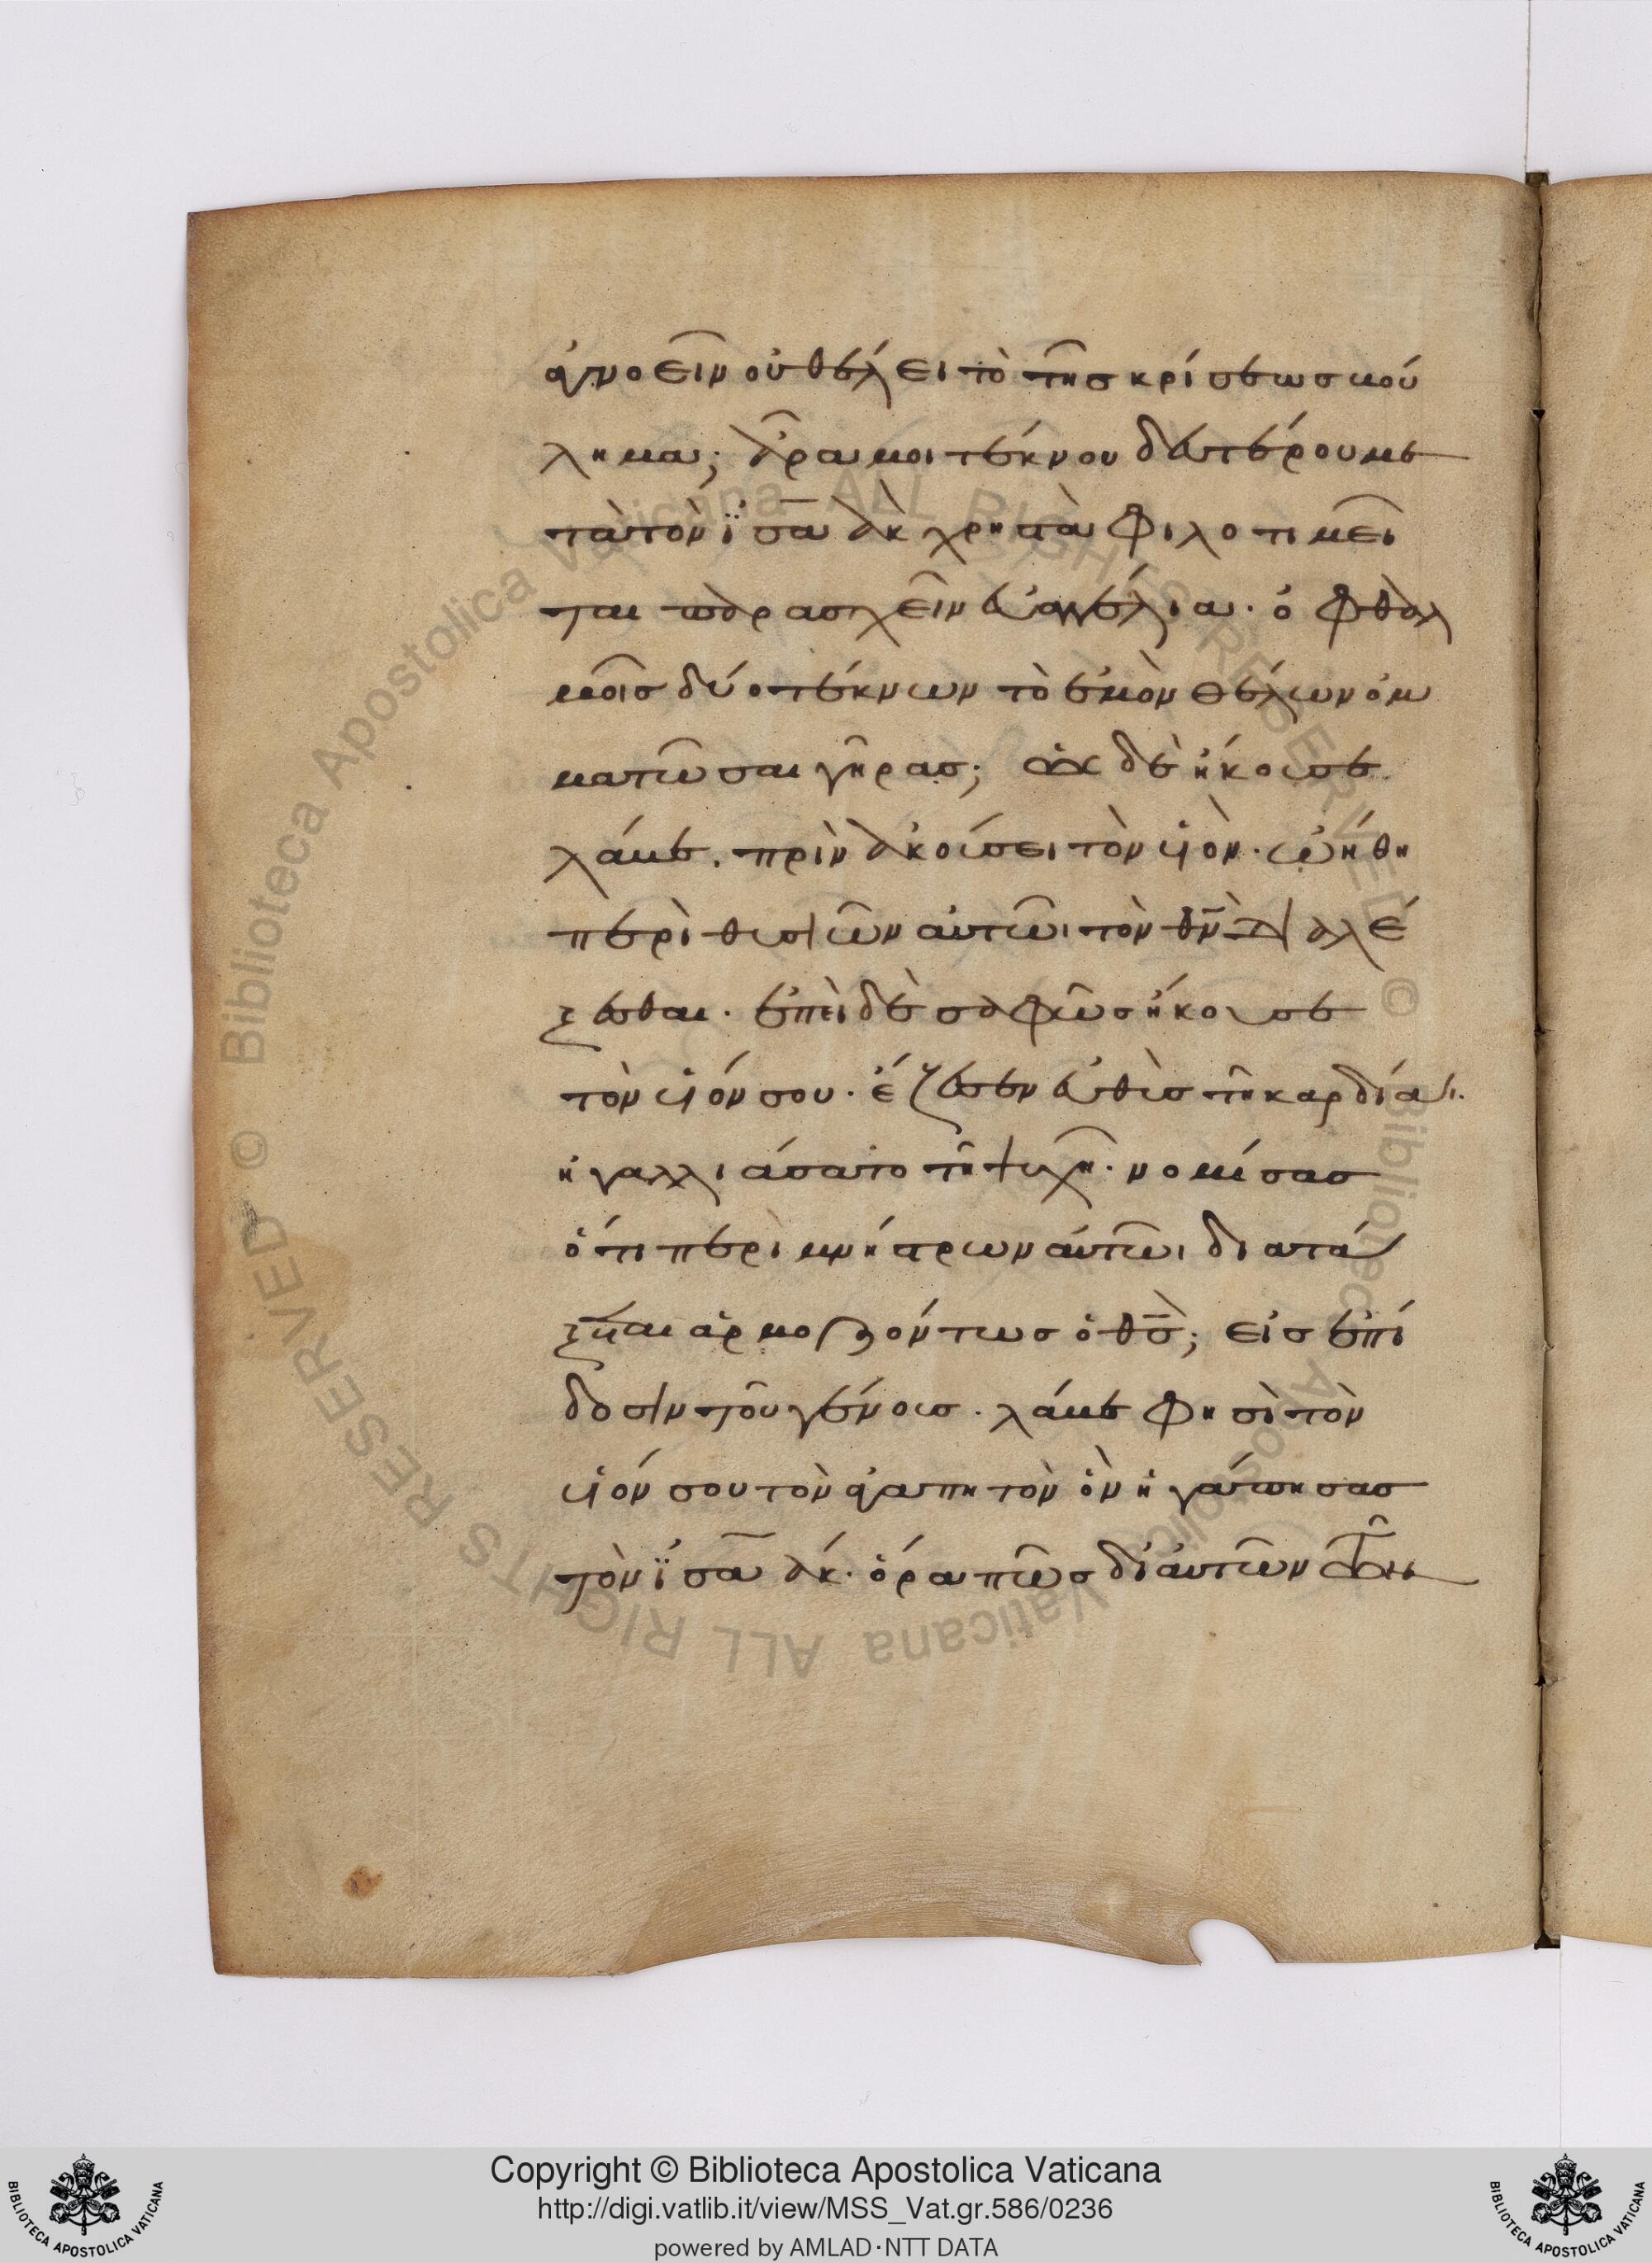 ἀγνοεῖν οὐ θέλει τὸ τῆς κρίσεως κού
λημα; ἆρα μοι τέκνου δευτέρου με
τὰ τὸν ἰσαὰκ χρηστὰ φιλοτιμεῖ
ται παρασχεῖν εὐαγγέλια· ὀφθαλ
μοῖς δύο τέκνων τὸ ἐμὸν θέλων ὀμ
ματῶσαι γῆρας; ὡς δὲ ἤκουσε
λάμε. πρὶν ἀκούσει τὸν υἱὸν· ᾠήθη
περὶ θυσιῶν αὐτῶι τὸν θν̄ διαλέ
ξεσθαι· ἐπεὶ δὲ σαφῶς ἤκουσε
τὸν υἱόν σου· ἔζεσεν εὐθὺς τῆ καρδίαι·
ἠγαλλιάσατο τῆ ψυχῆ· νομίσας
ὅτι περὶ μνήστρων αὐτῶι διατά
ξηται ἁρμοζόντως ὁ θς̄; εἰς ἐπί
δοσιν τοῦ γένους· λάμε φησὶ τὸν
υἱόν σου τὸν ἀγαπητὸν ὃν ἠγάπησας
τὸν ἰσαάκ· ὅρα πῶς δι' αὐτῶν
Copyright © Biblioteca Apostolica Vaticana
http://digi.vatlib.it/view/MSS_Vat.gr.586/0236
powered by AMLAD·NTT DATA
BIBLIOTECA APOSTOLICA VATICANA
BIBLIOTECA APOSTOLICA VATICANA
Biblioteca Apostolica Vaticana ALL RIGHTS RESERVED ©
Biblioteca Apostolica Vaticana ALL RIGHTS RESERVED ©